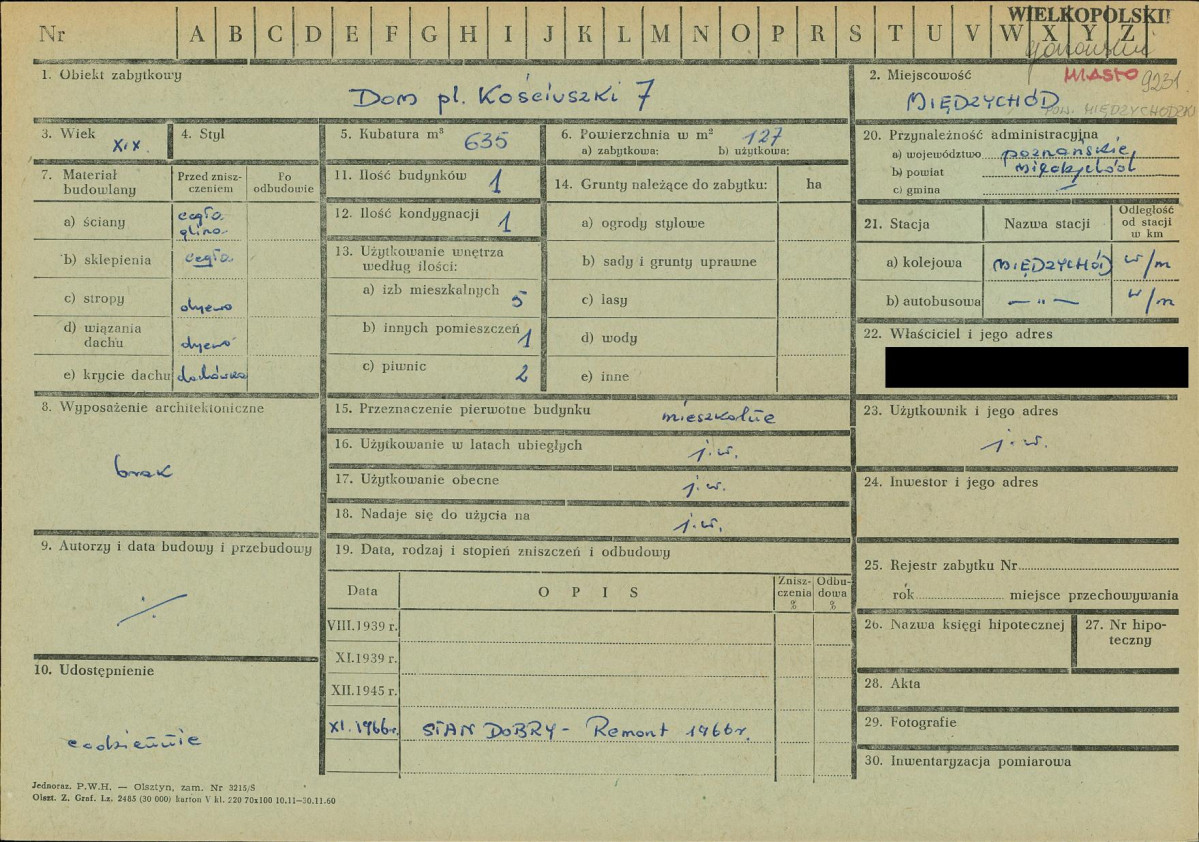 Nr A B C D E F G H I J K L M N O P R S T U V W X Y Z
WIELKOPOLSKI!
MIASTO 9231
POW. MIĘDZYCHODZKI
1. Obiekt zabytkowy
Dom pl. Kościuszki 7
2. Miejscowość
MIĘDZYCHÓD
3. Wiek
XIX.
4. Styl
5. Kubatura m³
635
6. Powierzchnia w m²
127
a) zabytkowa: b) użytkowa:
7. Materiał budowlany
Przed zniszczeniem
Po odbudowie
a) ściany
cegła
glina
b) sklepienia cegła
c) stropy drewno
d) wiązania dachu drewno
e) krycie dachu dachówka
8. Wyposażenie architektoniczne
brak
9. Autorzy i data budowy i przebudowy
·/·
10. Udostępnienie
codziennie
11. Ilość budynków 1
12. Ilość kondygnacji 1
13. Użytkowanie wnętrza według ilości:
a) izb mieszkalnych 5
b) innych pomieszczeń 1
c) piwnic 2
14. Grunty należące do zabytku: ha
a) ogrody stylowe
b) sady i grunty uprawne
c) lasy
d) wody
e) inne
15. Przeznaczenie pierwotne budynku mieszkalne
16. Użytkowanie w latach ubiegłych j.w.
17. Użytkowanie obecne j.w.
18. Nadaje się do użycia na j.w.
19. Data, rodzaj i stopień zniszczeń i odbudowy
Data OPIS Zniszczenia % Odbudowa %
VIII.1939 r.
XI.1939 r.
XII.1945 r.
XI.1966r. STAN DOBRY – Remont 1966r.
20. Przynależność administracyjna
a) województwo poznańskie
b) powiat Międzychód
c) gmina —
21. Stacja Nazwa stacji Odległość od stacji w km
a) kolejowa MIĘDZYCHÓD w/m
b) autobusowa — " — w/m
22. Właściciel i jego adres
23. Użytkownik i jego adres
j.w.
24. Inwestor i jego adres
25. Rejestr zabytku Nr
rok miejsce przechowywania
26. Nazwa księgi hipotecznej
27. Nr hipoteczny
28. Akta
29. Fotografie
30. Inwentaryzacja pomiarowa
Jednoraz. P.W.H. — Olsztyn, zam. Nr 3215/S
Olszt. Z. Graf. Lz. 2485 (30 000) karton V kl. 220 70x100 10.11—30.11.60